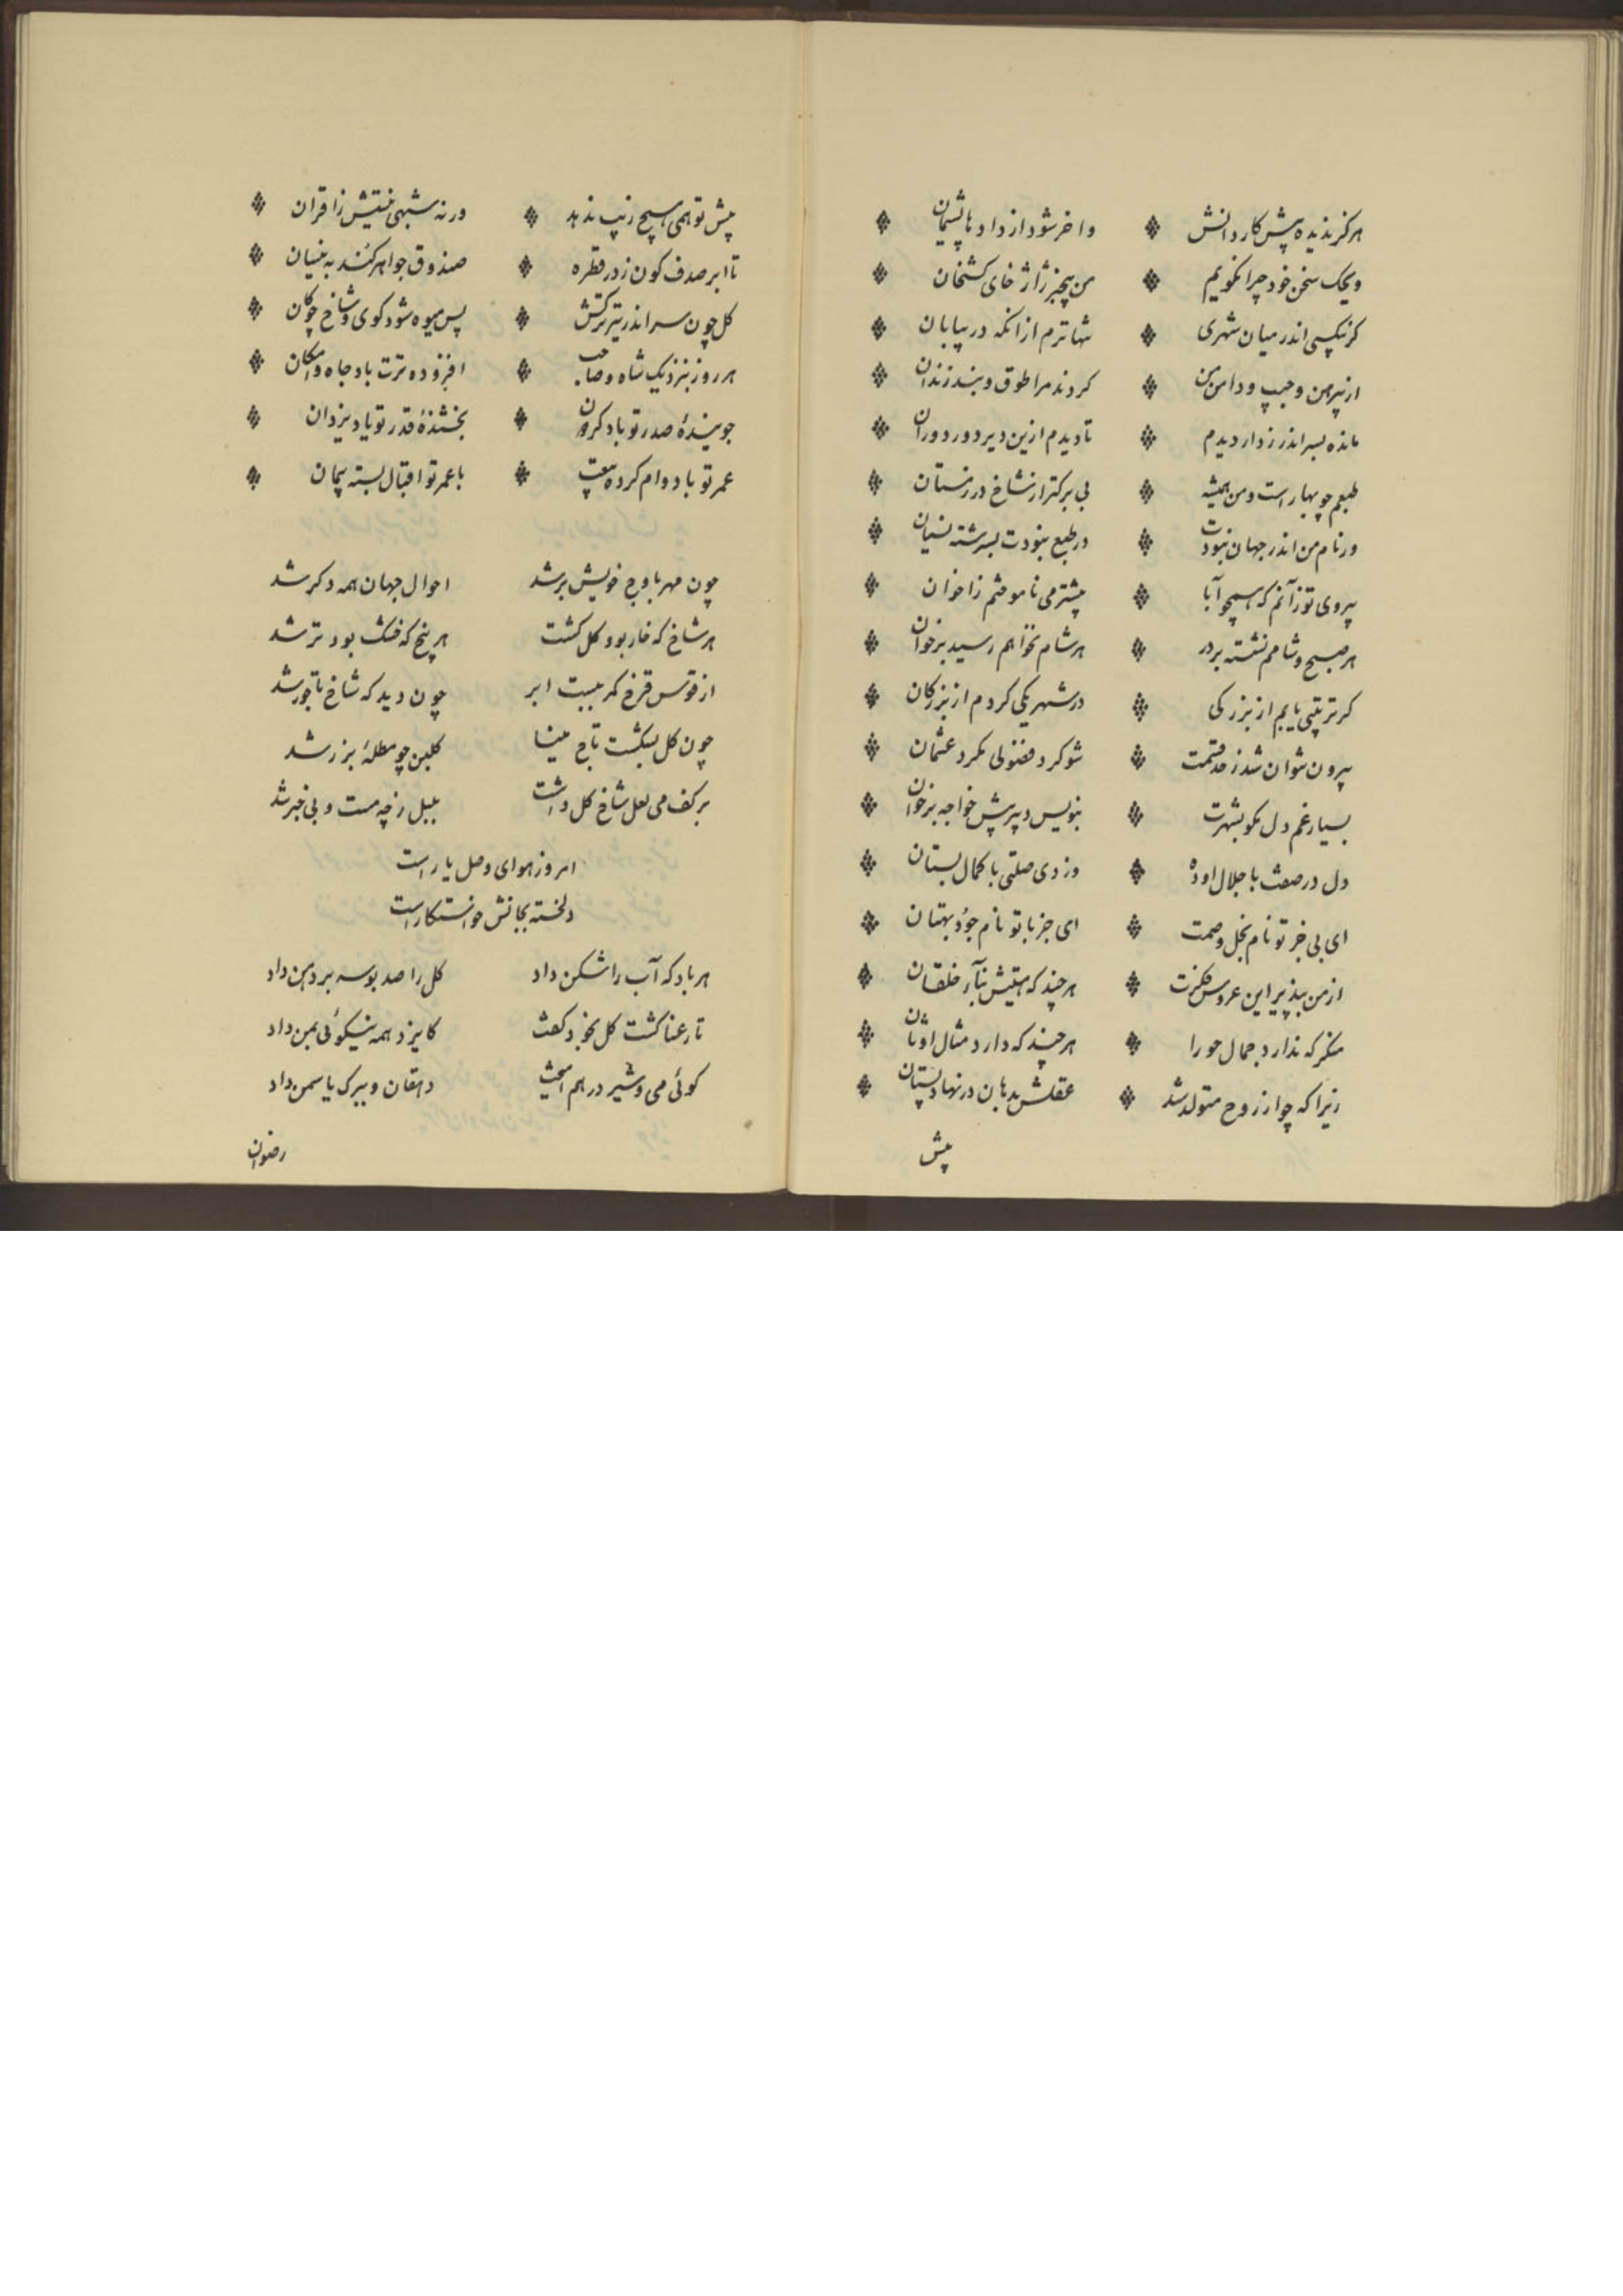 هرکز ندیده پیش کار دانش واخر شود از داد ها پشیمان
ویحک سخن خود چرا نکویم من بیخبر ژاژ خای کشخان
کر نیکسی اندر میان شهری تنها ترم از انکه در بیابان
از پیرهن و جیب و دامن من کردند مرا طوق و بند زندان
مانده بسر اندر ز دار دیدم تا دیدم ازین دیر دور دوران
طبعم چو بهار است و من همیشه بی برکتر از شاخ در زمستان
ور نام من اندر جهان نبودت در طبع نبودت بسرشته نسیان
پیروی تو زآنم که همچو آبا بیشتر می ناموختم ز اخوان
هر صبح و شامم نشسته بر در هر شام نخواهم رسید بر خوان
کر تربیتی یابم از بزرکی در شهر یکی کردم از بزرکان
بیرون نتوان شد ز حد قسمت نتو کرد فضولی مکرد عثمان
بسیار غم دل مکو بشهرت بنویس و بپیش خواجه بر خوان
دل در صفت با جلال او ده وز وی صلتی با کمال بستان
ای بی خبر تو نام بخل وصمت ای جز با تو نام جود بهتان
از من بپذیر این عروس فکرت هر چند که هستیش بتآر خلقان
منکر که ندارد جمال حورا هر چند که دارد مثال اوثان
زیرا که چو از روح متولد شد عقلش بدهان در نهاد پستان
پیش
پیش تو همی هیچ زیب ندهد ورنه شبهی نیستش ز اقران
تا ابر صدف کون ز در قطره صندوق جواهر کند به نیسان
کل چون سر اندر تیر ترکش پس میوه شود کوی و شاخ چوکان
هر روز بنزدیک شاه و صاحب افزوده ترت باد جاه و امکان
جویندهٔ صدر تو باد کردون بخشندهٔ قدر تو باد یزدان
عمر تو با دوام کرده بیعت با عمر تو اقبال بسته پیمان
چون مهر باوج خویش بر شد احوال جهان همه دکر شد
هر شاخ که خار بود کل کشت هر بیخ که خشک بود تر شد
از قوس قزح کمر ببست ابر چون دید که شاخ تاجور شد
چون کل بشکست تاج مینا کلبن چو مظلهٔ بزر شد
بر کف می لعل شاخ کل داشت بلبل ز چه مست و بی خبر شد
امروز هوای وصل یار است
دلخسته بجانش خواستکار است
هر باد که آب را شکن داد کل را صد بوسه بر دهن داد
تا رعنا کشت کل بخود کفت کایزد همه نیکوئی بمن داد
کوئی می و شیر در هم آمیخت دهقان و ببرک یاسمن داد
رضوان